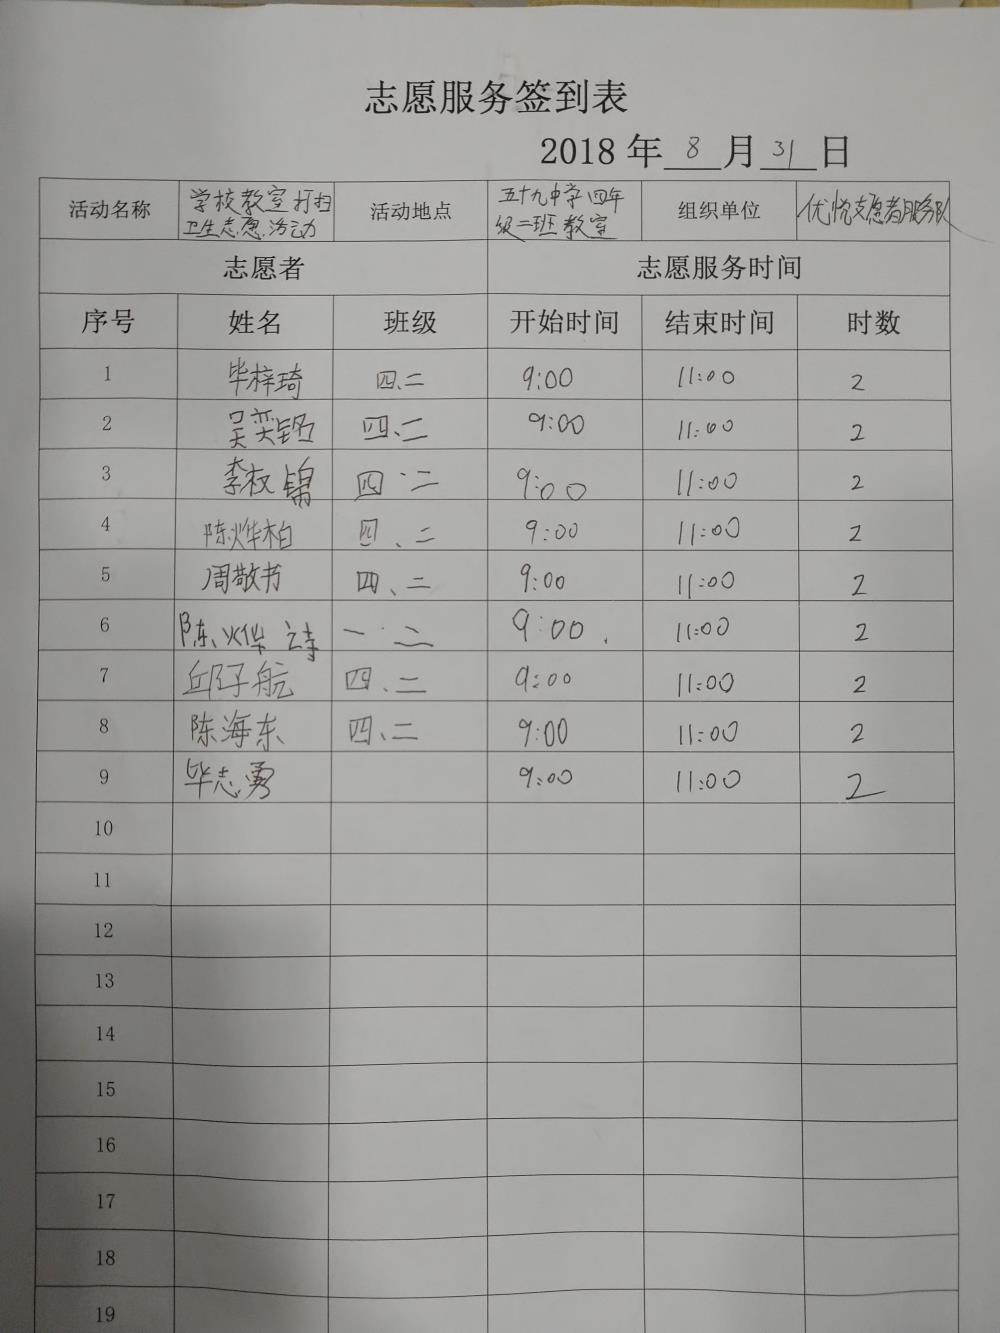 志愿服务签到表
2018 年 8 月 31 日
活动名称 学校教室打扫卫生志愿活动 活动地点 五十九中学四年级二班教室 组织单位 优悦志愿者服务队
志愿者 志愿服务时间
序号 姓名 班级 开始时间 结束时间 时数
1 毕梓琦 四、二 9:00 11:00 2
2 吴奕铭 四、二 9:00 11:00 2
3 李权锦 四·二 9:00 11:00 2
4 陈烨柏 四、二 9:00 11:00 2
5 周敬书 四、二 9:00 11:00 2
6 陈烨诗 一·二 9:00 11:00 2
7 邱子航 四、二 9:00 11:00 2
8 陈海东 四、二 9:00 11:00 2
9 毕志勇 9:00 11:00 2
10
11
12
13
14
15
16
17
18
19